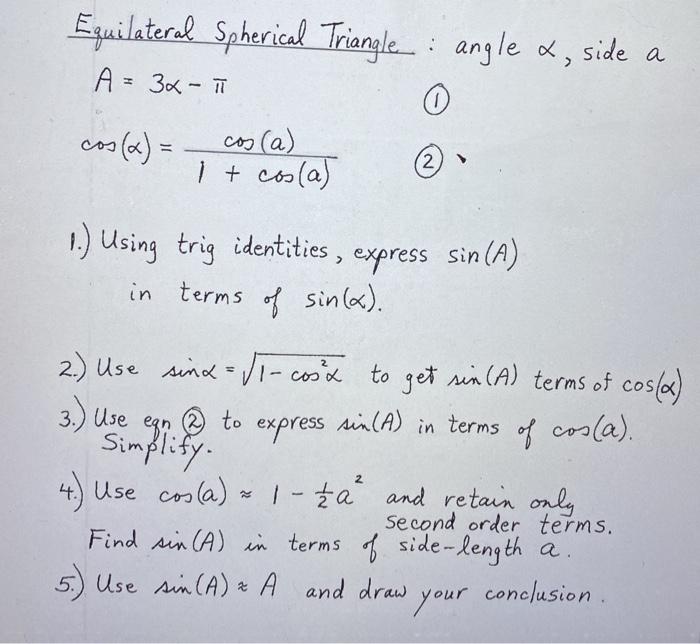 Equilateral Spherical Triangle : angle α, side a
A = 3α - π ①
cos(α) = cos(a) / 1 + cos(a) ②
1.) Using trig identities, express sin(A)
in terms of sin(α).
2.) Use sinα = √1 - cos²α to get sin(A) terms of cos(α)
3.) Use eqn ② to express sin(A) in terms of cos(a).
Simplify.
4.) Use cos(a) ≈ 1 - ½a² and retain only
second order terms.
Find sin(A) in terms of side-length a.
5.) Use sin(A) ≈ A and draw your conclusion.